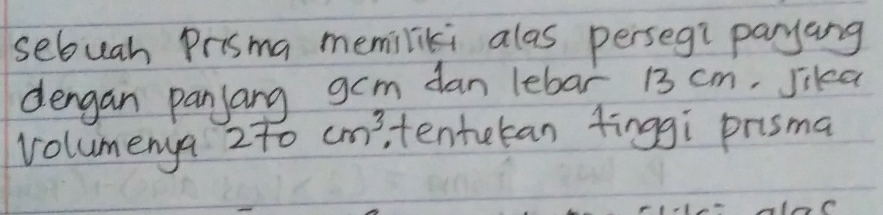 sebuah Prisma memiliki alas persegi panjang
dengan panjang 9cm dan lebar 13 cm. Jika
Volumenya 270 cm³, tentukan tinggi prisma
alas